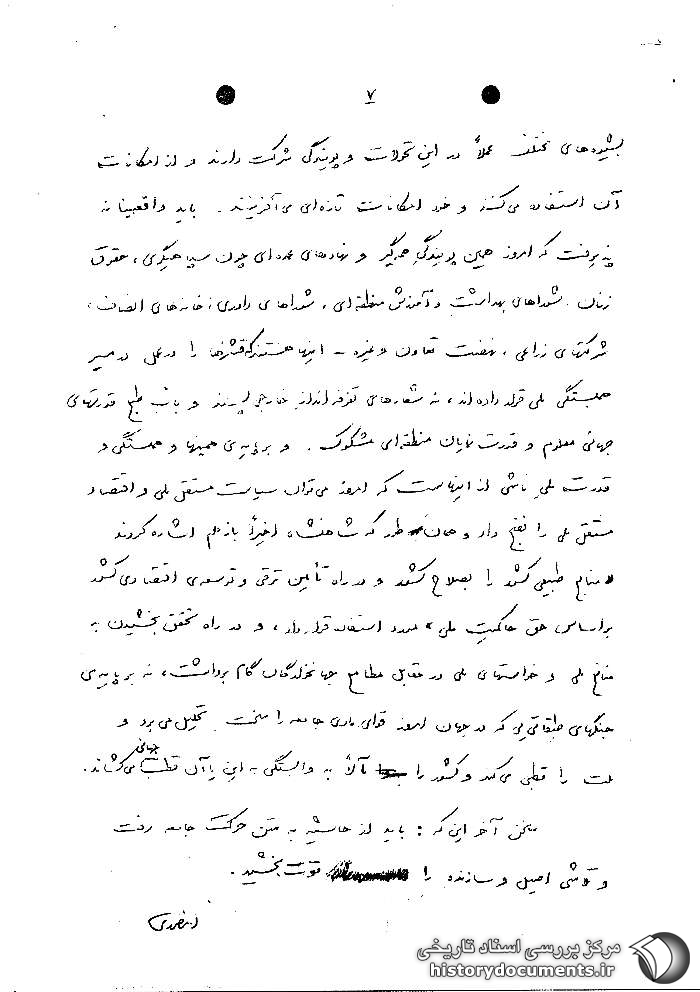 ۷
بشیوه‌های مختلف عملاً در این تحولات و پویندگی شرکت دارند و از امکانات
آن استفاده می‌کنند و خود امکانات تازه‌ای می‌آفرینند. باید واقعبینانه
پذیرفت که امروز همین پویندگی همه‌گیر و نهادهای عمده‌ای چون سپاهیگری، حقوق
زنان، شوراهای بهداشت و آموزش منطقه‌ای، شوراهای داوری، خانه‌های انصاف،
شرکتهای زراعی، نهضت تعاون و غیره - اینها هستند که قشرها را در عمل در مسیر
همبستگی ملی قرار داده‌اند، نه شعارهای تفرقه‌انداز خارجی پسند و باب طبع قدرتهای
جهانی معلوم و قدرت نمایان منطقه‌ای مشکوک. و بر پایه‌ی همینها و همبستگی و
قدرت ملی ناشی از اینهاست که امروز می‌توان سیاست مستقل ملی و اقتصاد
مستقل ملی را نضج داد و همان طور که شاهنشاه اخیراً باز هم اشاره کردند
«منابع طبیعی کشور را بصلاح کشور و در راه تأمین ترقی و توسعه‌ی اقتصادی کشور
براساس حق حاکمیت ملی» مورد استفاده قرار داد، و در راه تحقق بخشیدن به
منافع ملی و خواستهای ملی در مقابل مطامع جهانخوارگان گام برداشت، نه بر پایه‌ی
جنگهای طبقاتی‌یی که در جهان امروز قوای مادی جامعه را سخت تحلیل می‌برد و
ملت را قطبی می‌کند و کشور را مآلاً به وابستگی - این یا آن قطب جهانی می‌کشاند.
سخن آخر این که: باید از حاشیه به متن حرکت جامعه رفت
و تلاشی اصیل و سازنده را قوت بخشید.
مرکز بررسی اسناد تاریخی
historydocuments.ir